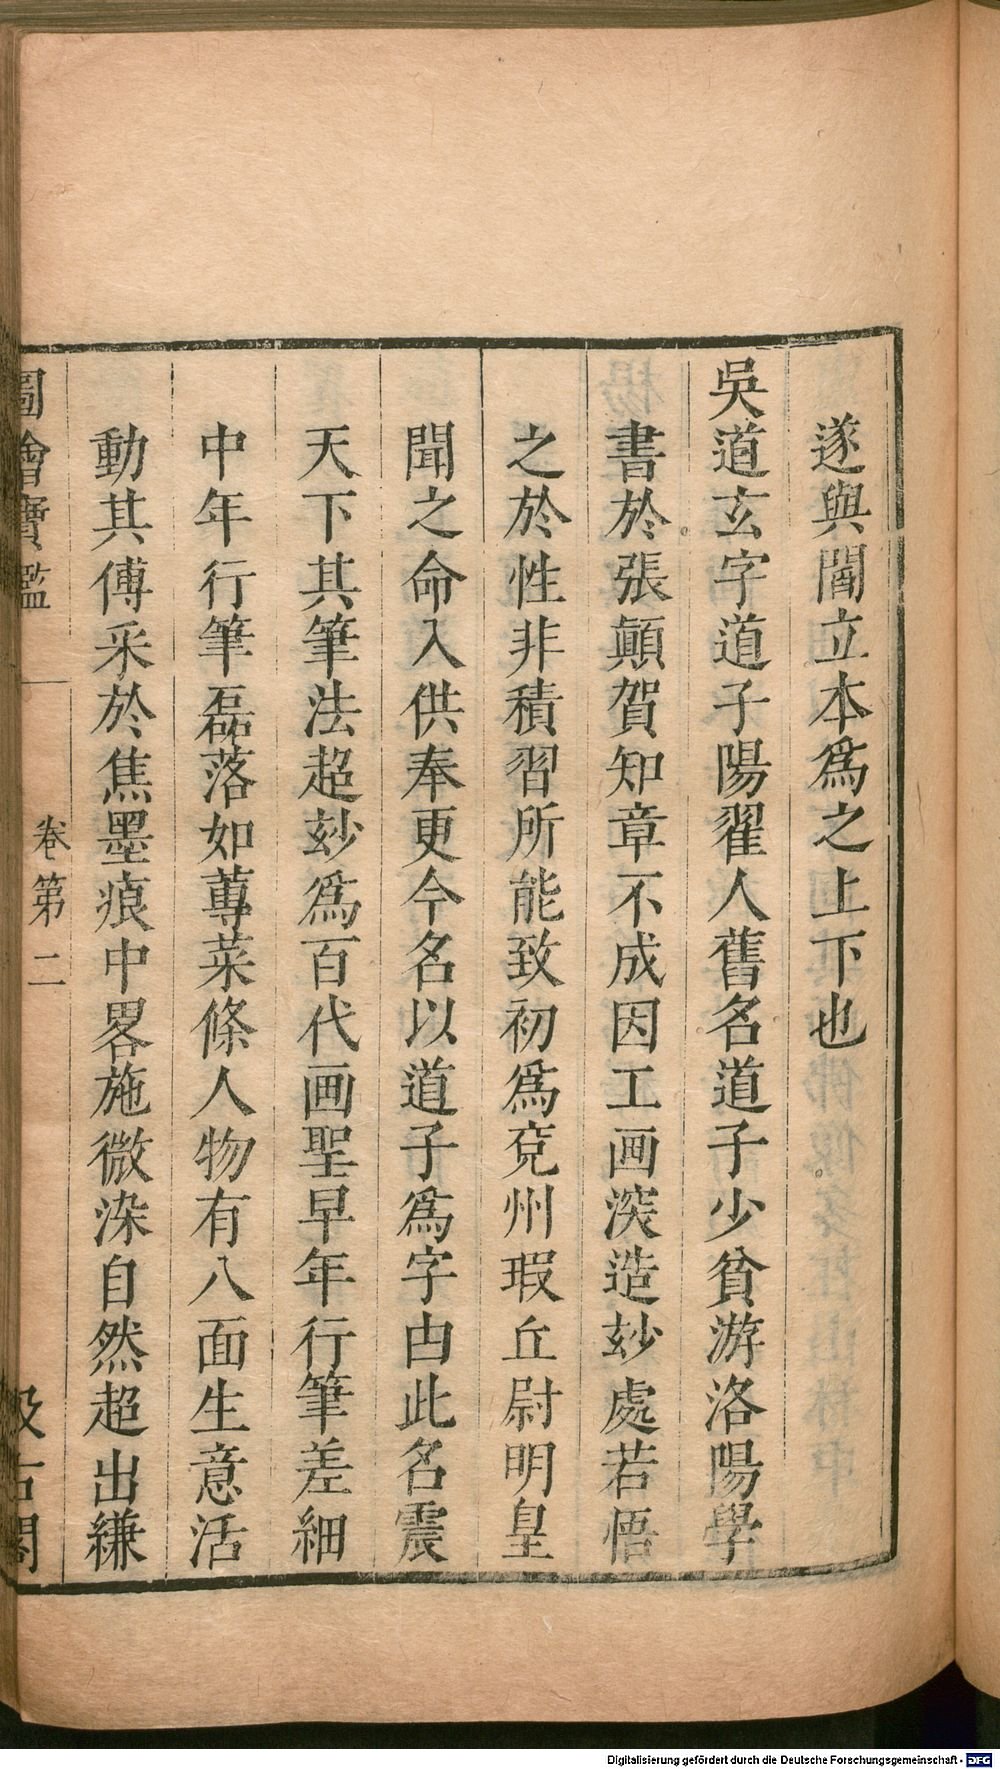 遂與閻立本爲之上下也
吳道玄字道子陽翟人舊名道子少貧游洛陽學
書於張顛賀知章不成因工画深造玅處若悟
之於性非積習所能致初爲兗州瑕丘尉明皇
聞之命入供奉更今名以道子爲字由此名震
天下其筆法超玅爲百代画聖早年行筆差細
中年行筆磊落如蓴菜條人物有八面生意活
動其傅采於焦墨痕中畧施微染自然超出縑
圖繪寶鑑
卷第二
汲古閣
Digitalisierung gefördert durch die Deutsche Forschungsgemeinschaft - DFG